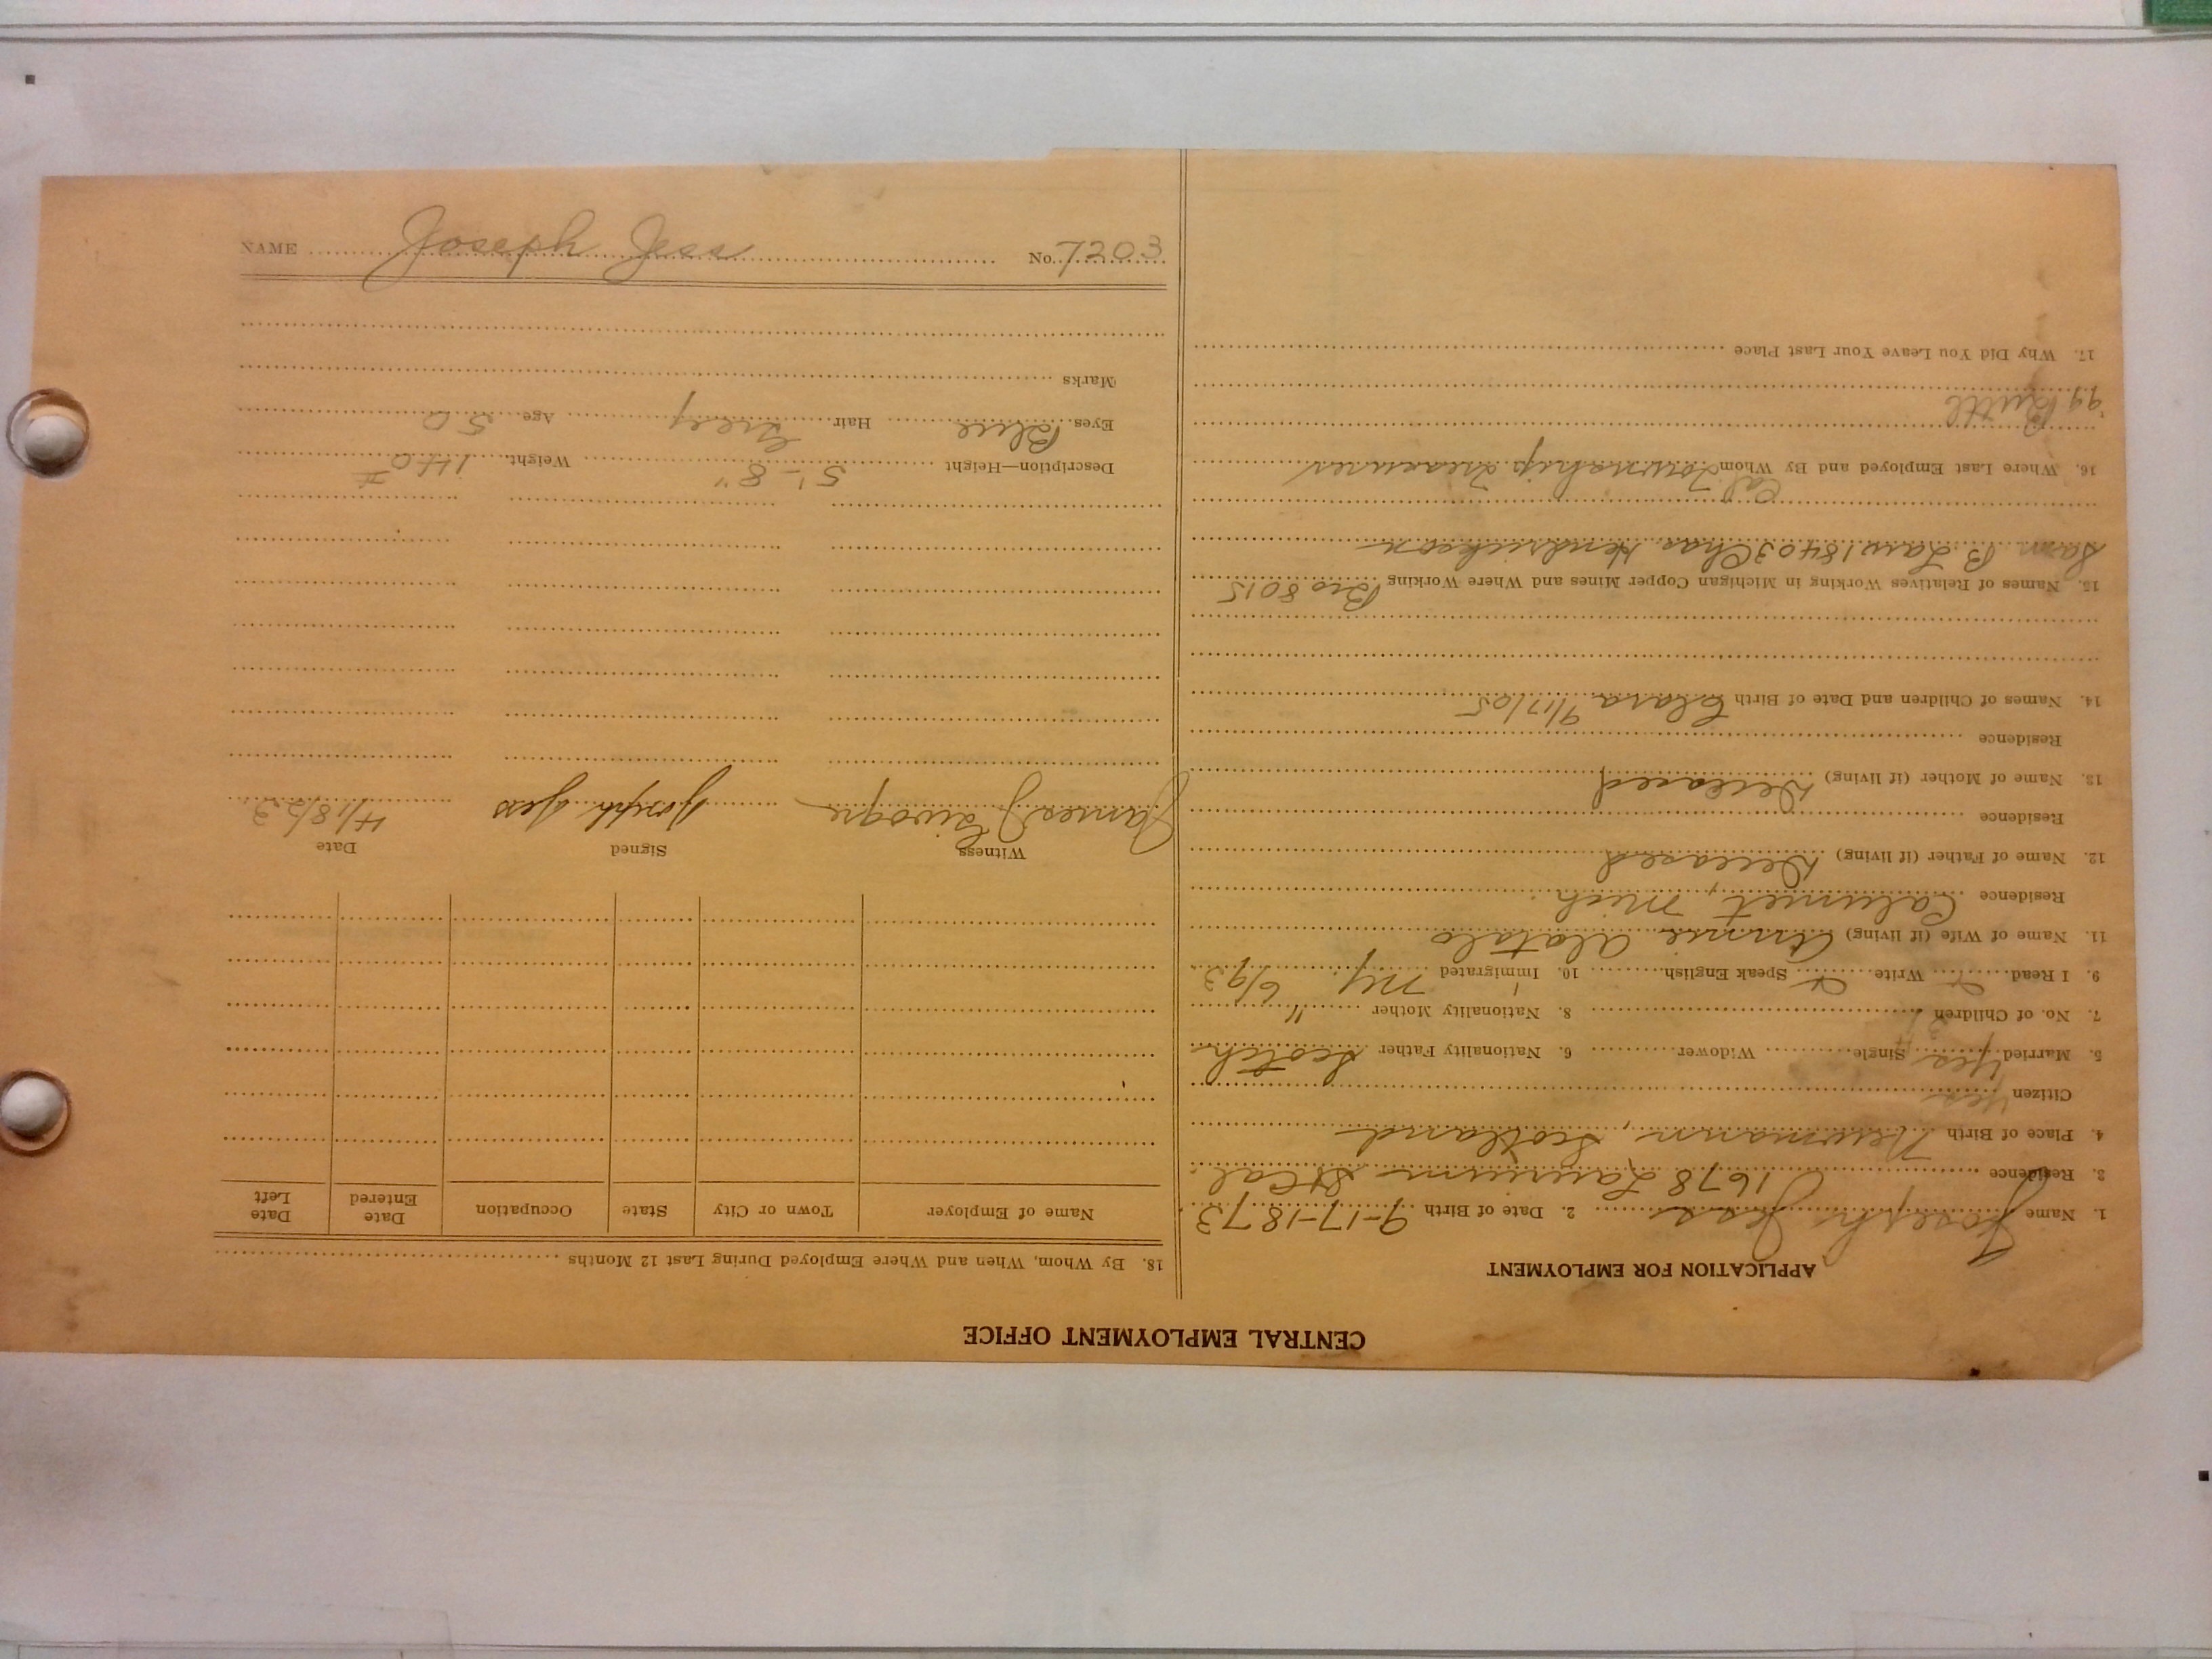 NAME Joseph Jess No. 7203
CENTRAL EMPLOYMENT OFFICE
APPLICATION FOR EMPLOYMENT
1. Name Joseph Jess 2. Date of Birth 9-17-1873
3. Residence 1678 Laurium St Cal.
4. Place of Birth Newmann, Scotland
Citizen Yes
5. Married Yes Single Widower 6. Nationality Father Scotch
7. No. of Children 8. Nationality Mother "
9. I Read Write Speak English 10. Immigrated NY 6/93
11. Name of Wife (if living) Annie Alatalo
Residence Calumet, Mich.
12. Name of Father (if living) Deceased
Residence
13. Name of Mother (if living) Deceased
Residence
14. Names of Children and Date of Birth Clara 9/17/05
15. Names of Relatives Working in Michigan Copper Mines and Where Working Bro 8015
B Law 18403 Chas. Hendrickson
16. Where Last Employed and By Whom Cal. Township Treasurer
17. Why Did You Leave Your Last Place
18. By Whom, When and Where Employed During Last 12 Months
Name of Employer Town or City State Occupation Date Entered Date Left
Witness Signed Date
James Joseph Jess 4/18/23
Description—Height 5'-8" Weight 140 #
Eyes Blue Hair Grey Age 50
Marks